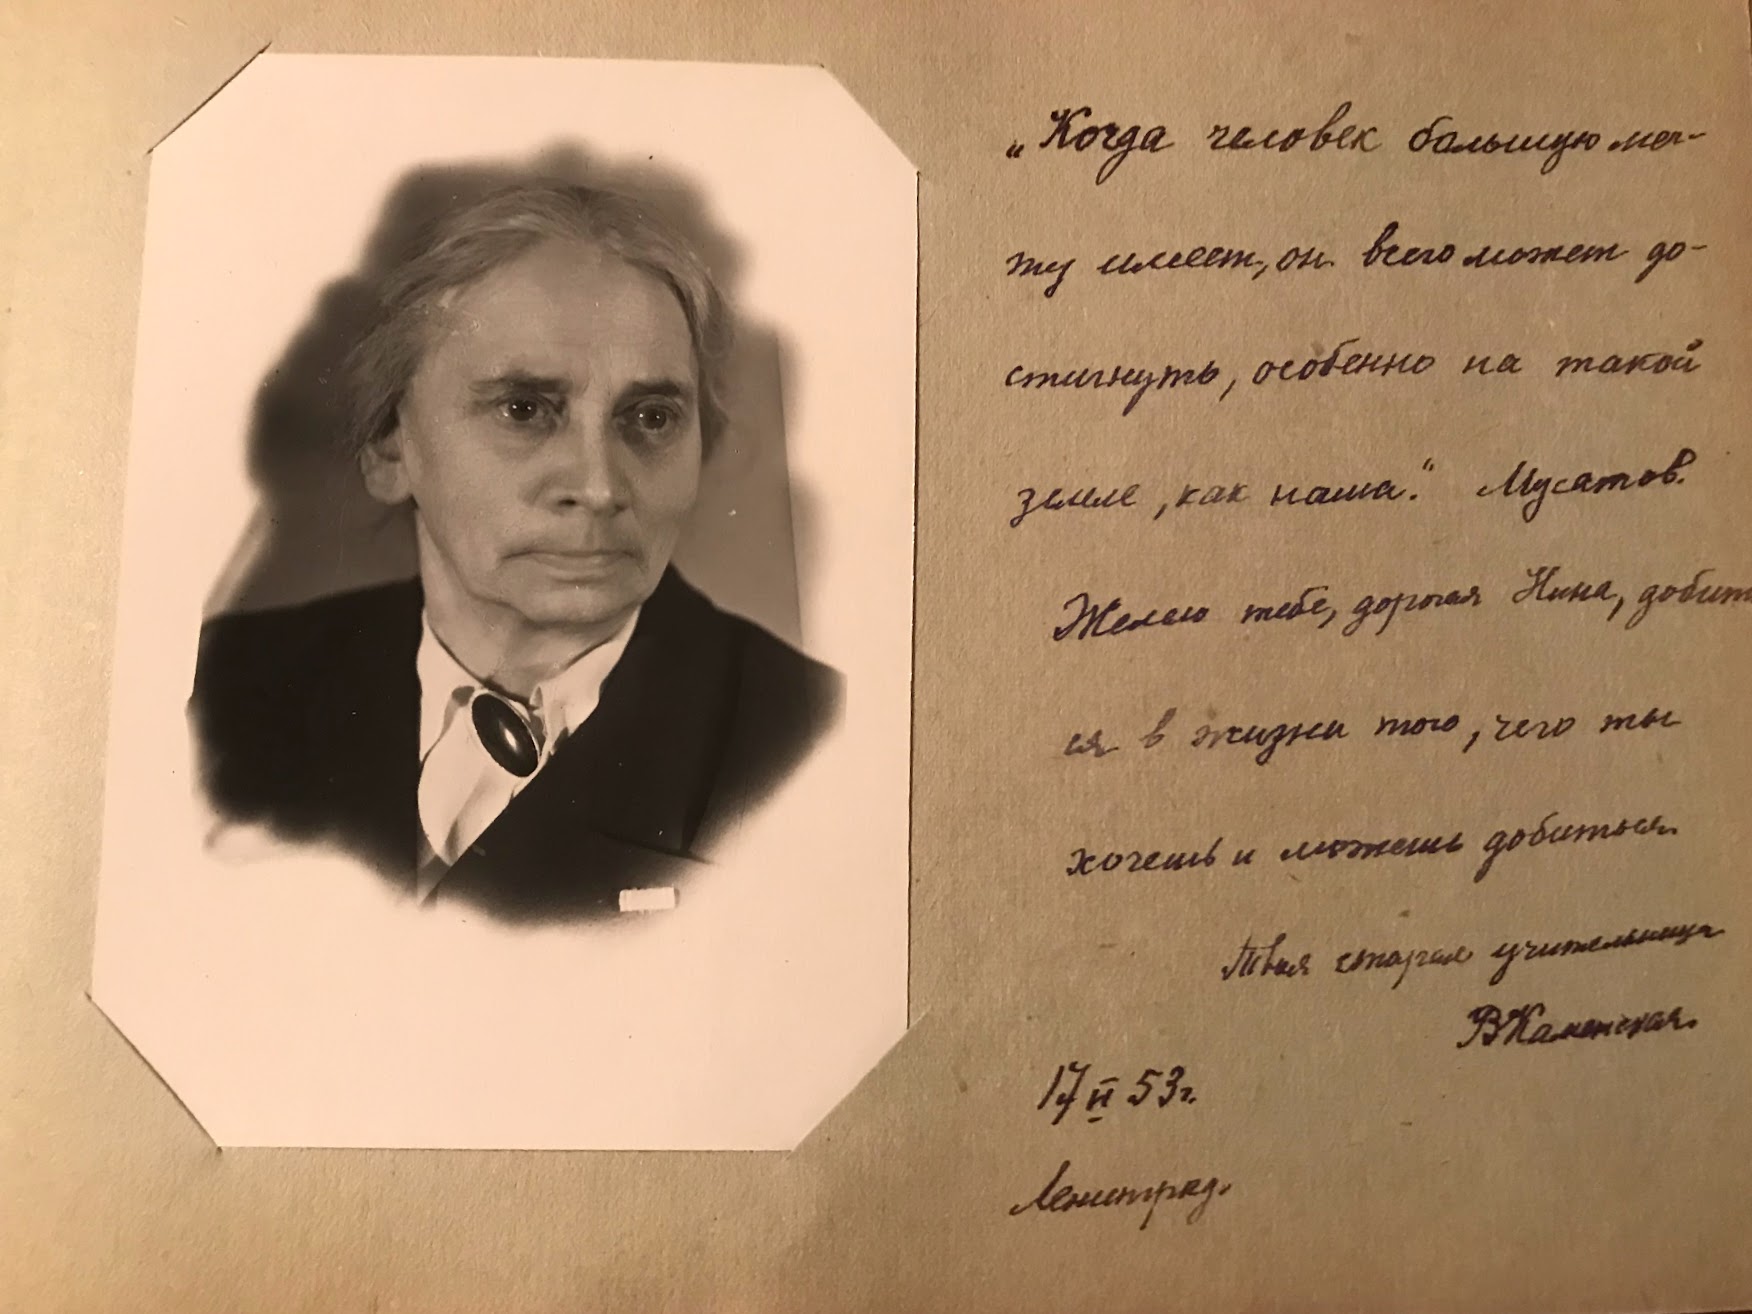 „Когда человек большую меч-
ту имеет, он всего может до-
стигнуть, особенно на такой
земле, как наша.“ Мусатов.
Желаю тебе, дорогая Нина, добить
ся в жизни того, чего ты
хочешь и можешь добиться.
Твоя старая учительница
ВКаменская.
17 II 53г.
Ленинград.